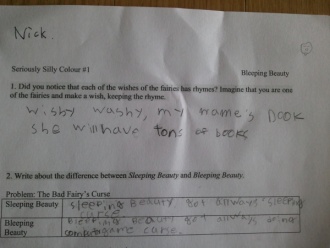 Nick.
Seriously Silly Colour #1
Bleeping Beauty
1. Did you notice that each of the wishes of the fairies has rhymes? Imagine that you are one
of the fairies and make a wish, keeping the rhyme.
wishy washy, my name's Dook
she will have tons of books
2. Write about the difference between Sleeping Beauty and Bleeping Beauty.
Problem: The Bad Fairy's Curse
Sleeping Beauty sleeping Beauty get always sleeping
curse
Bleeping Bleeping Beauty get always
Beauty computer game curse.